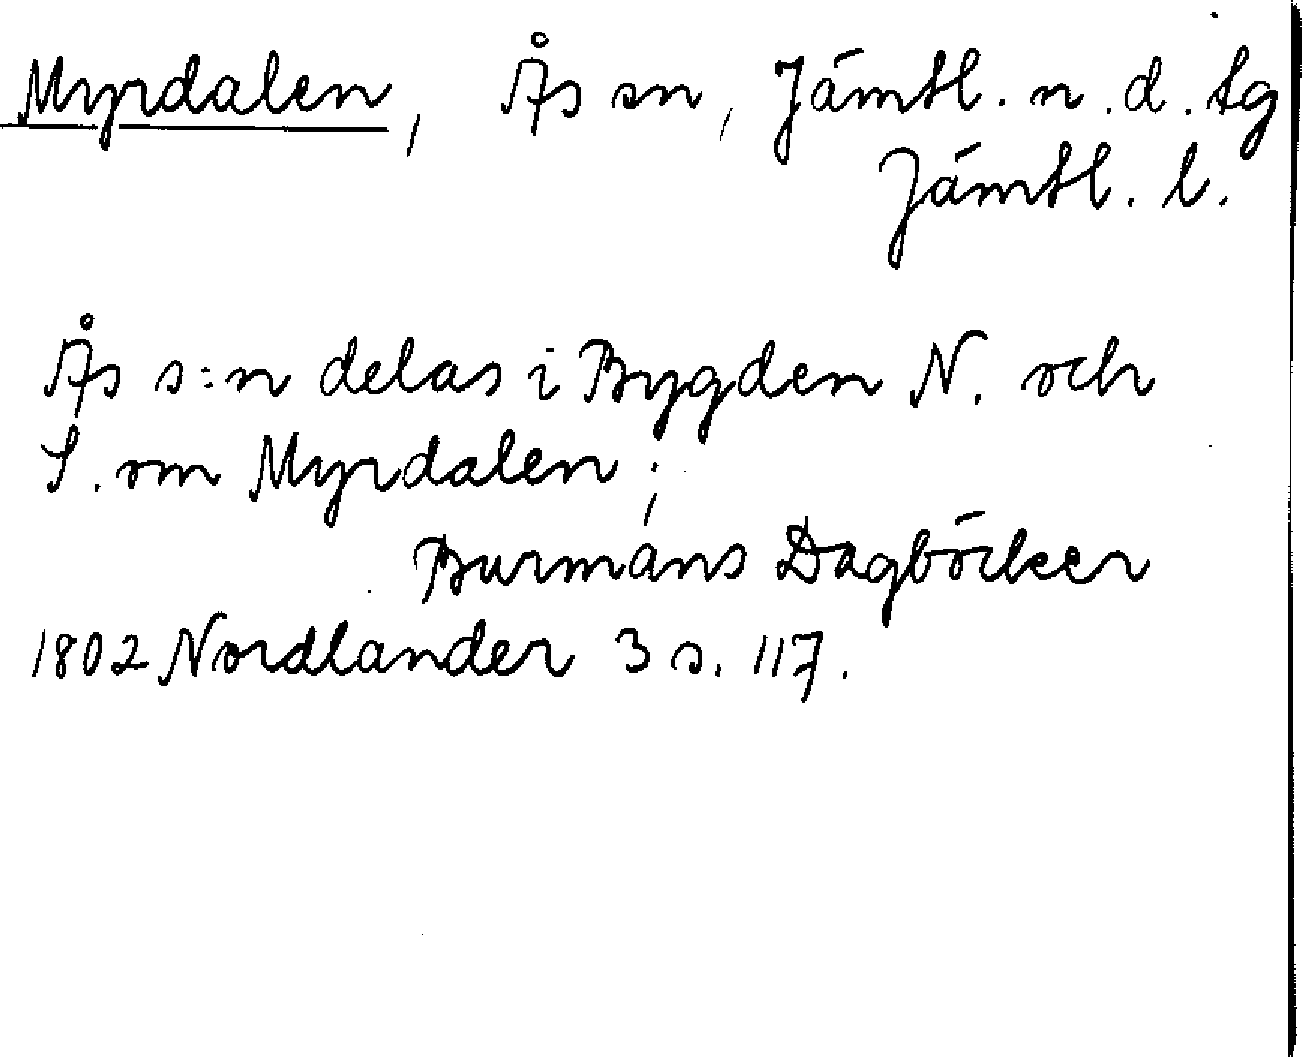 Myrdalen, Ås sn, Jämtl. n. d. tg
Jämtl. l.
Ås s:n delas i Bygden N. och
S. om Myrdalen;
Burmans Dagböcker
1802 Nordlander 3 s. 117.